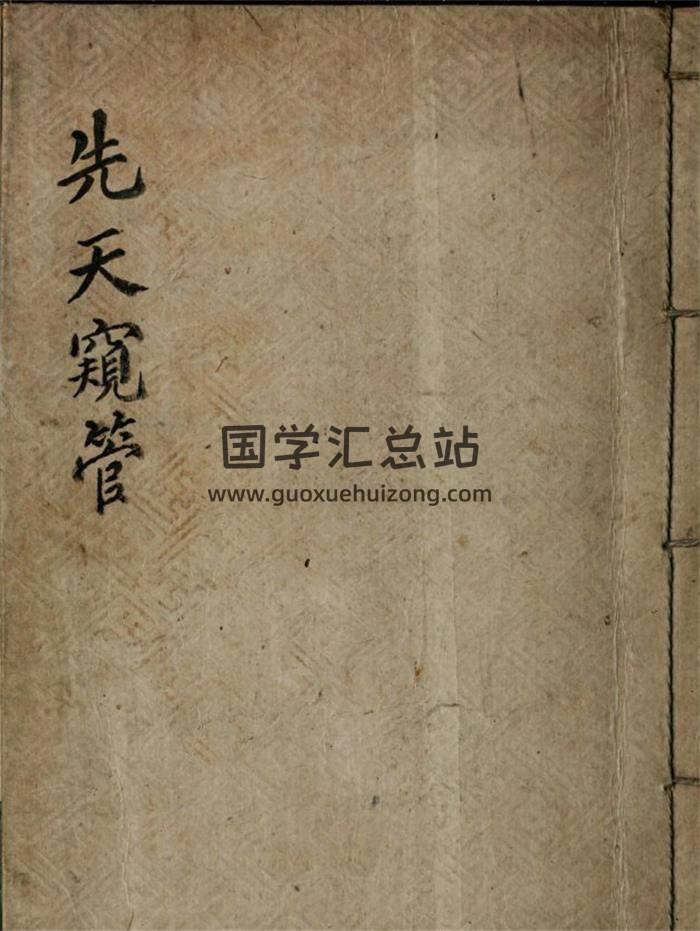 先天窺管
国学汇总站
www.guoxuehuizong.com